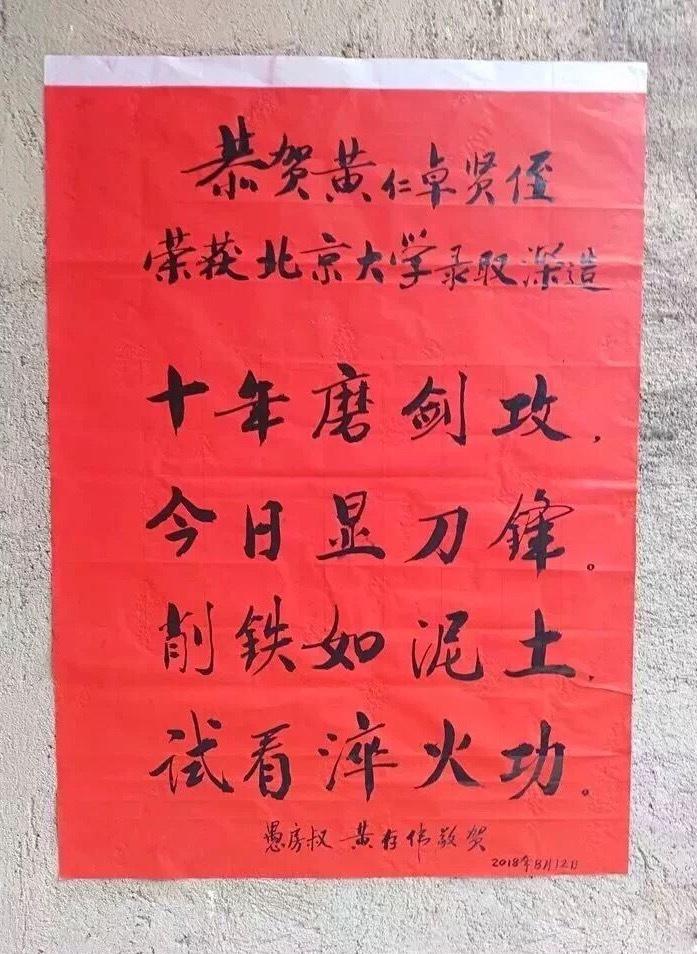 恭贺黄仁卓贤侄
荣获北京大学录取深造
十年磨剑攻,
今日显刀锋。
削铁如泥土,
试看淬火功。
愚房叔 黄存伟敬贺
2018年8月12日